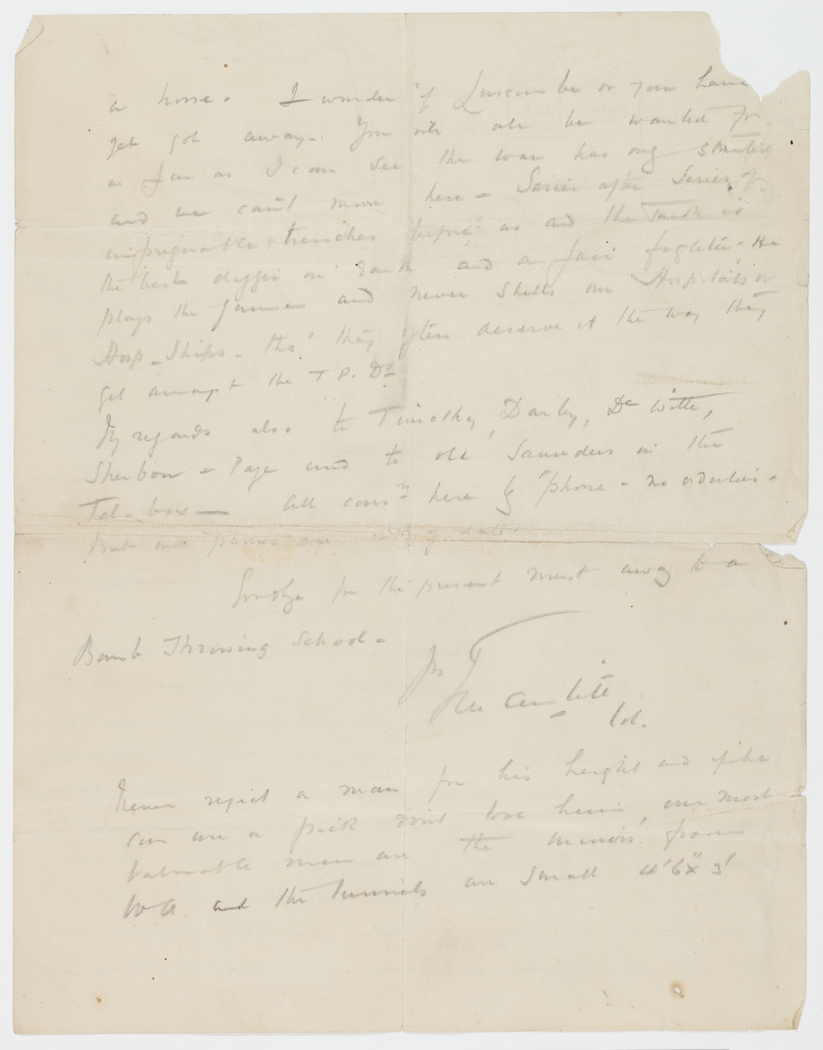 a horse. I wonder if Luscombe or you have
yet got away. You will all be wanted for
as far as I can see the war has only started
and we can't move here - Series after Series of
impregnable trenches before us and the Turk is
the best digger on Earth and a fair fighter. He
plays the game and never shells our Hospitals or
Hosp. Ships - tho' they often deserve it the way they
get amongst the T.P. Ds
My regards also to Timothy, Darby, De Witte,
Sherbon & Page and to old Saunders in the
Tel. box — All comn here by 'phone - no orderlies -
But our 'phones are
Goodbye for the present must away to a
Bomb Throwing School -
Yrs
Lt.
Never reject a man for his height and if he
can use a pick don't lose him, our most
valuable men are the miners from
W.A. and the Tunnels are small 4'6" x 3'